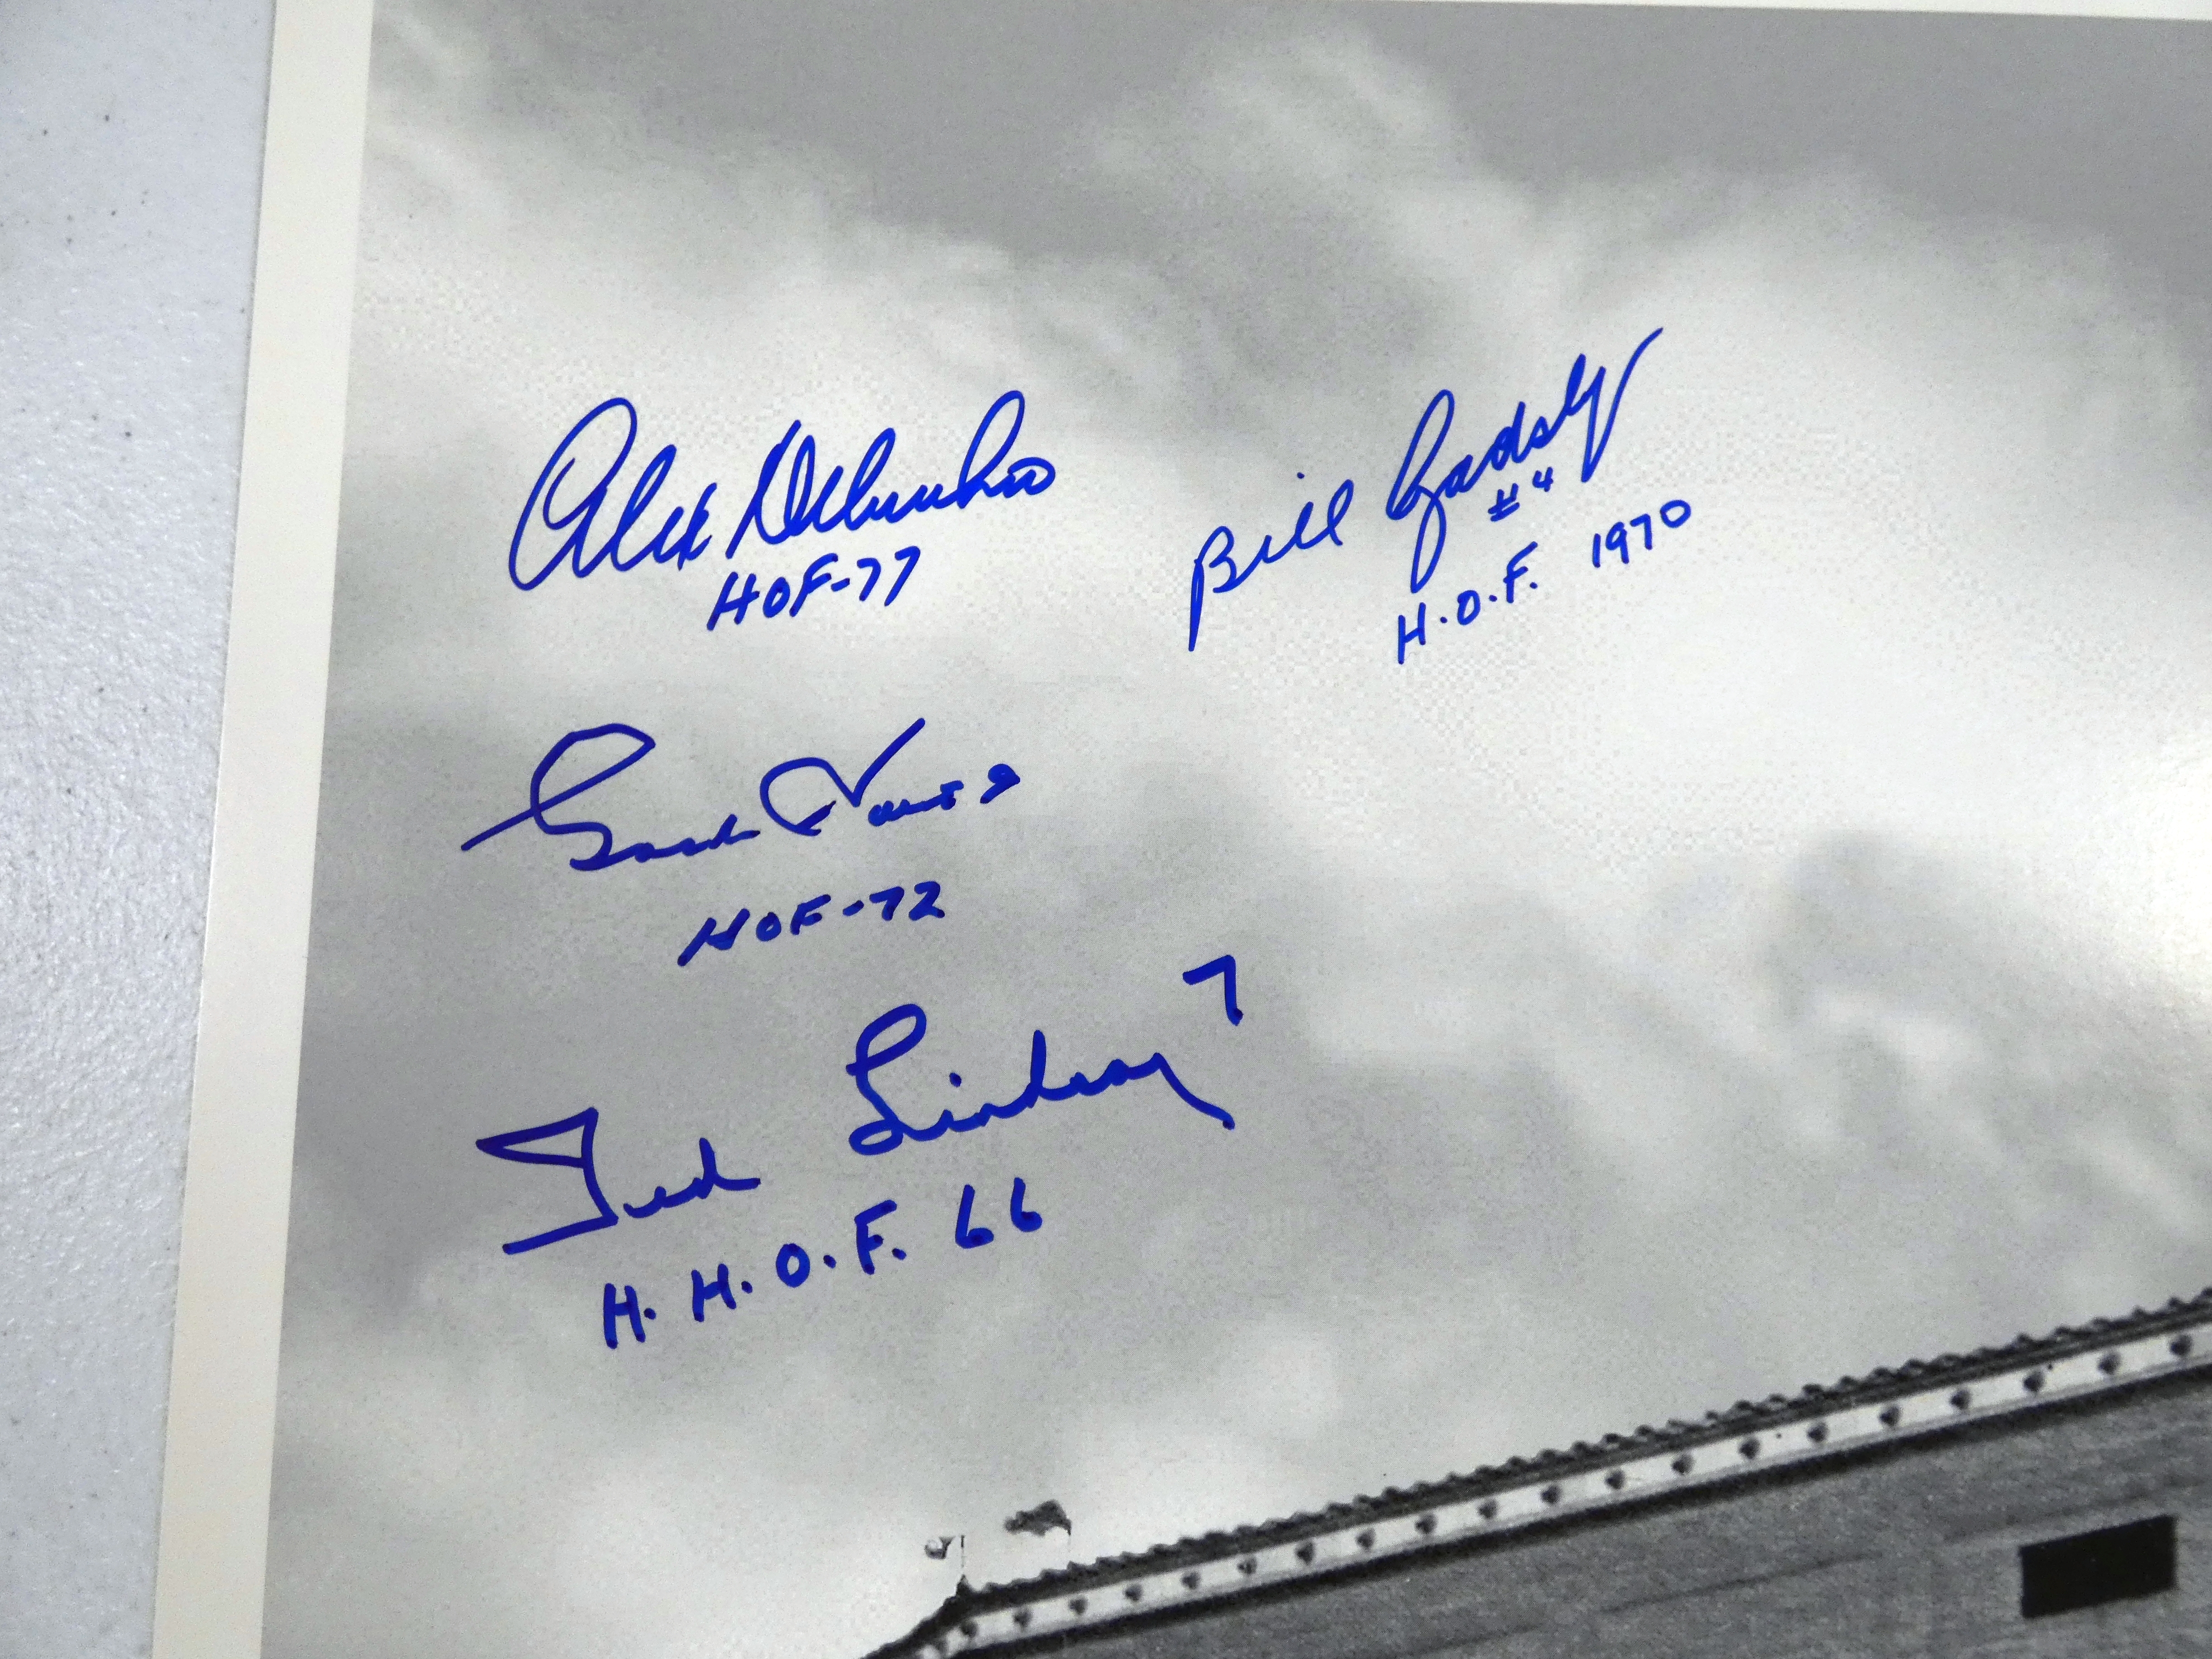 Alex Delvecchio
HOF-77
Bill Gadsby
#4
H.O.F. 1970
Gordie Howe 9
HOF-72
Ted Lindsay 7
H.H.O.F. 66